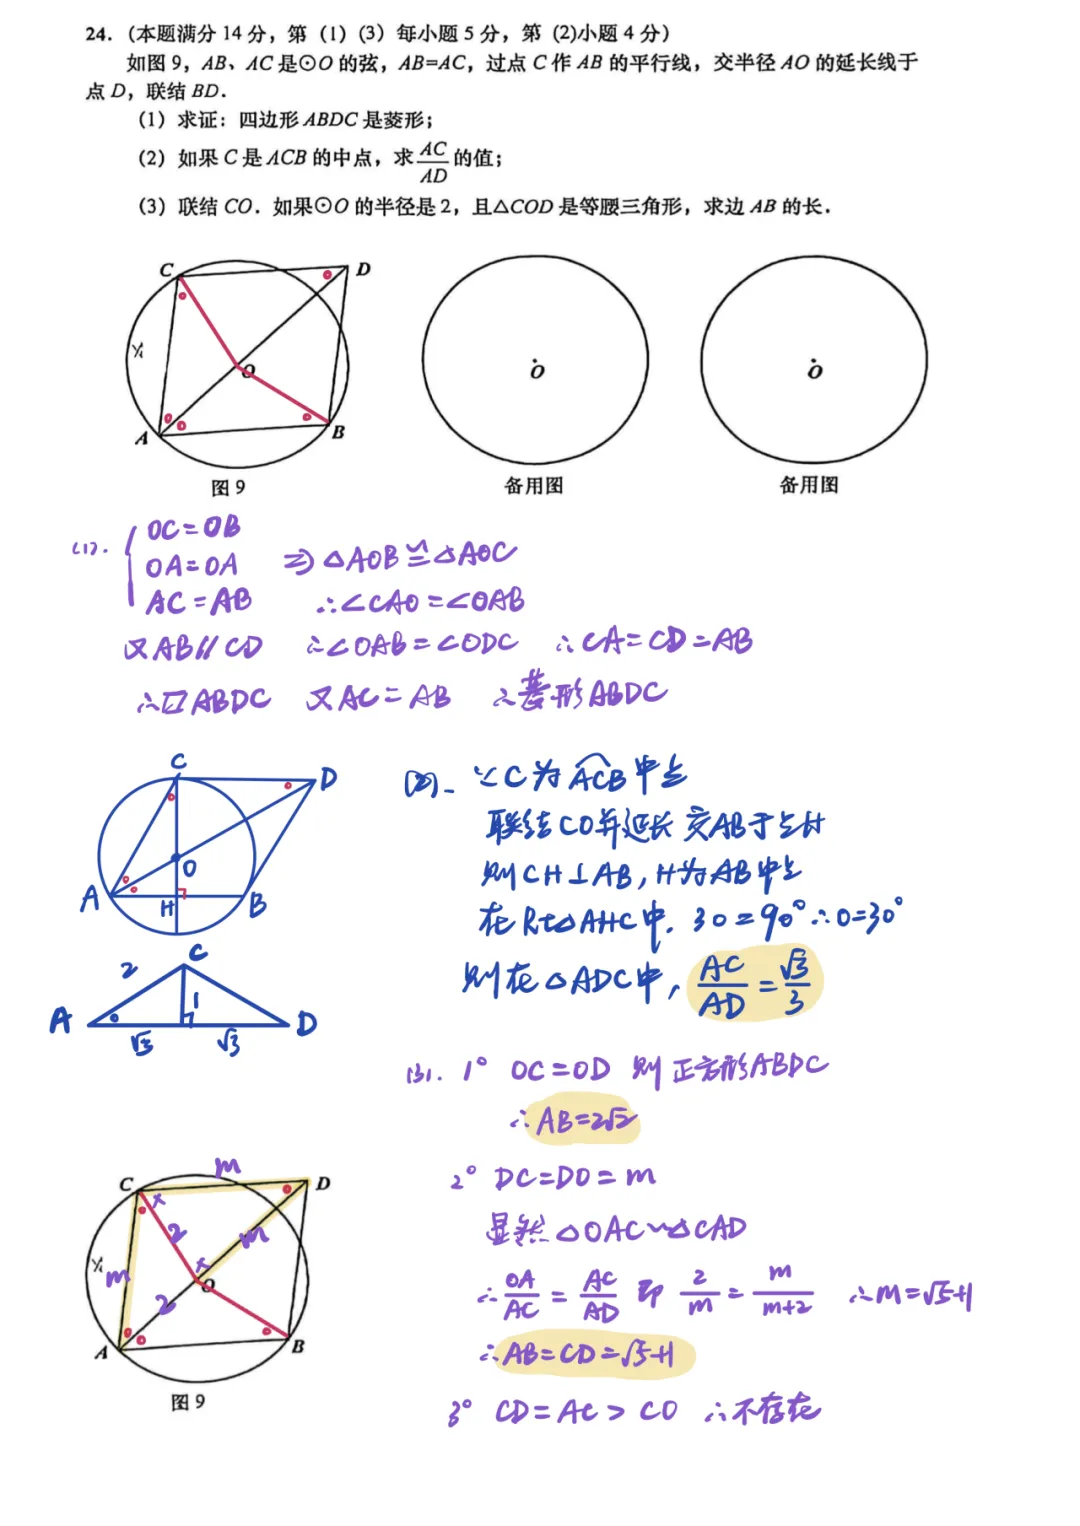 24. (本题满分 14 分，第 (1) (3) 每小题 5 分，第 (2)小题 4 分)
如图 9，AB、AC 是⊙O 的弦，AB=AC，过点 C 作 AB 的平行线，交半径 AO 的延长线于
点 D，联结 BD.
(1) 求证：四边形 ABDC 是菱形；
(2) 如果 C 是 ACB 的中点，求 AC/AD 的值；
(3) 联结 CO. 如果⊙O 的半径是 2，且△COD 是等腰三角形，求边 AB 的长.
C D O A B
图 9
O
备用图
O
备用图
(1). OC=OB
OA=OA ⇒ △AOB≌△AOC
AC=AB ∴∠CAO=∠OAB
又AB∥CD ∴∠OAB=∠ODC ∴CA=CD=AB
∴▱ABDC 又AC=AB ∴菱形ABDC
C D O A H B
(2). ∵C为ACB中点
联结CO并延长 交AB于点H
则CH⊥AB, H为AB中点
在Rt△AHC中, 3o=90° ∴o=30°
则在△ADC中, AC/AD=√3/3
C 2 1 A D √3 √3
(3). 1° OC=OD 则 正方形ABDC
∴AB=2√2
2° DC=DO=m
显然 △OAC∽△CAD
∴OA/AC=AC/AD 即 2/m=m/(m+2) ∴m=√5+1
∴AB=CD=√5+1
3° CD=AC>CO ∴不存在
m C D × 2 m m × O 2 A B
图 9